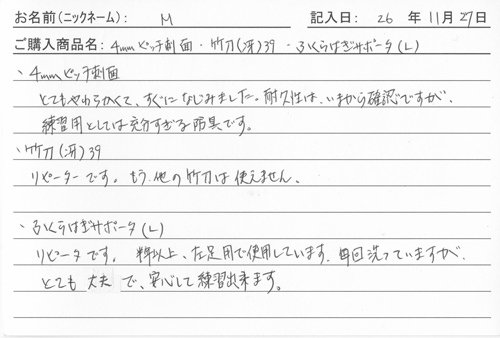 お名前(ニックネーム): M 記入日: 26 年 11月 27日
ご購入商品名: 4mmピッチ刺面・竹刀(冴)39・ふくらはぎサポータ(L)
・4mmピッチ刺面
とてもやわらかくて、すぐになじみました。耐久性は、いまから確認ですが、
練習用としては充分すぎる防具です。
・竹刀(冴)39
リピーターです。もう、他の竹刀は使えません。
・ふくらはぎサポータ(L)
リピータです。半年以上、左足用で使用しています。毎回洗っていますが、
とても 大夫 で、安心して練習出来ます。